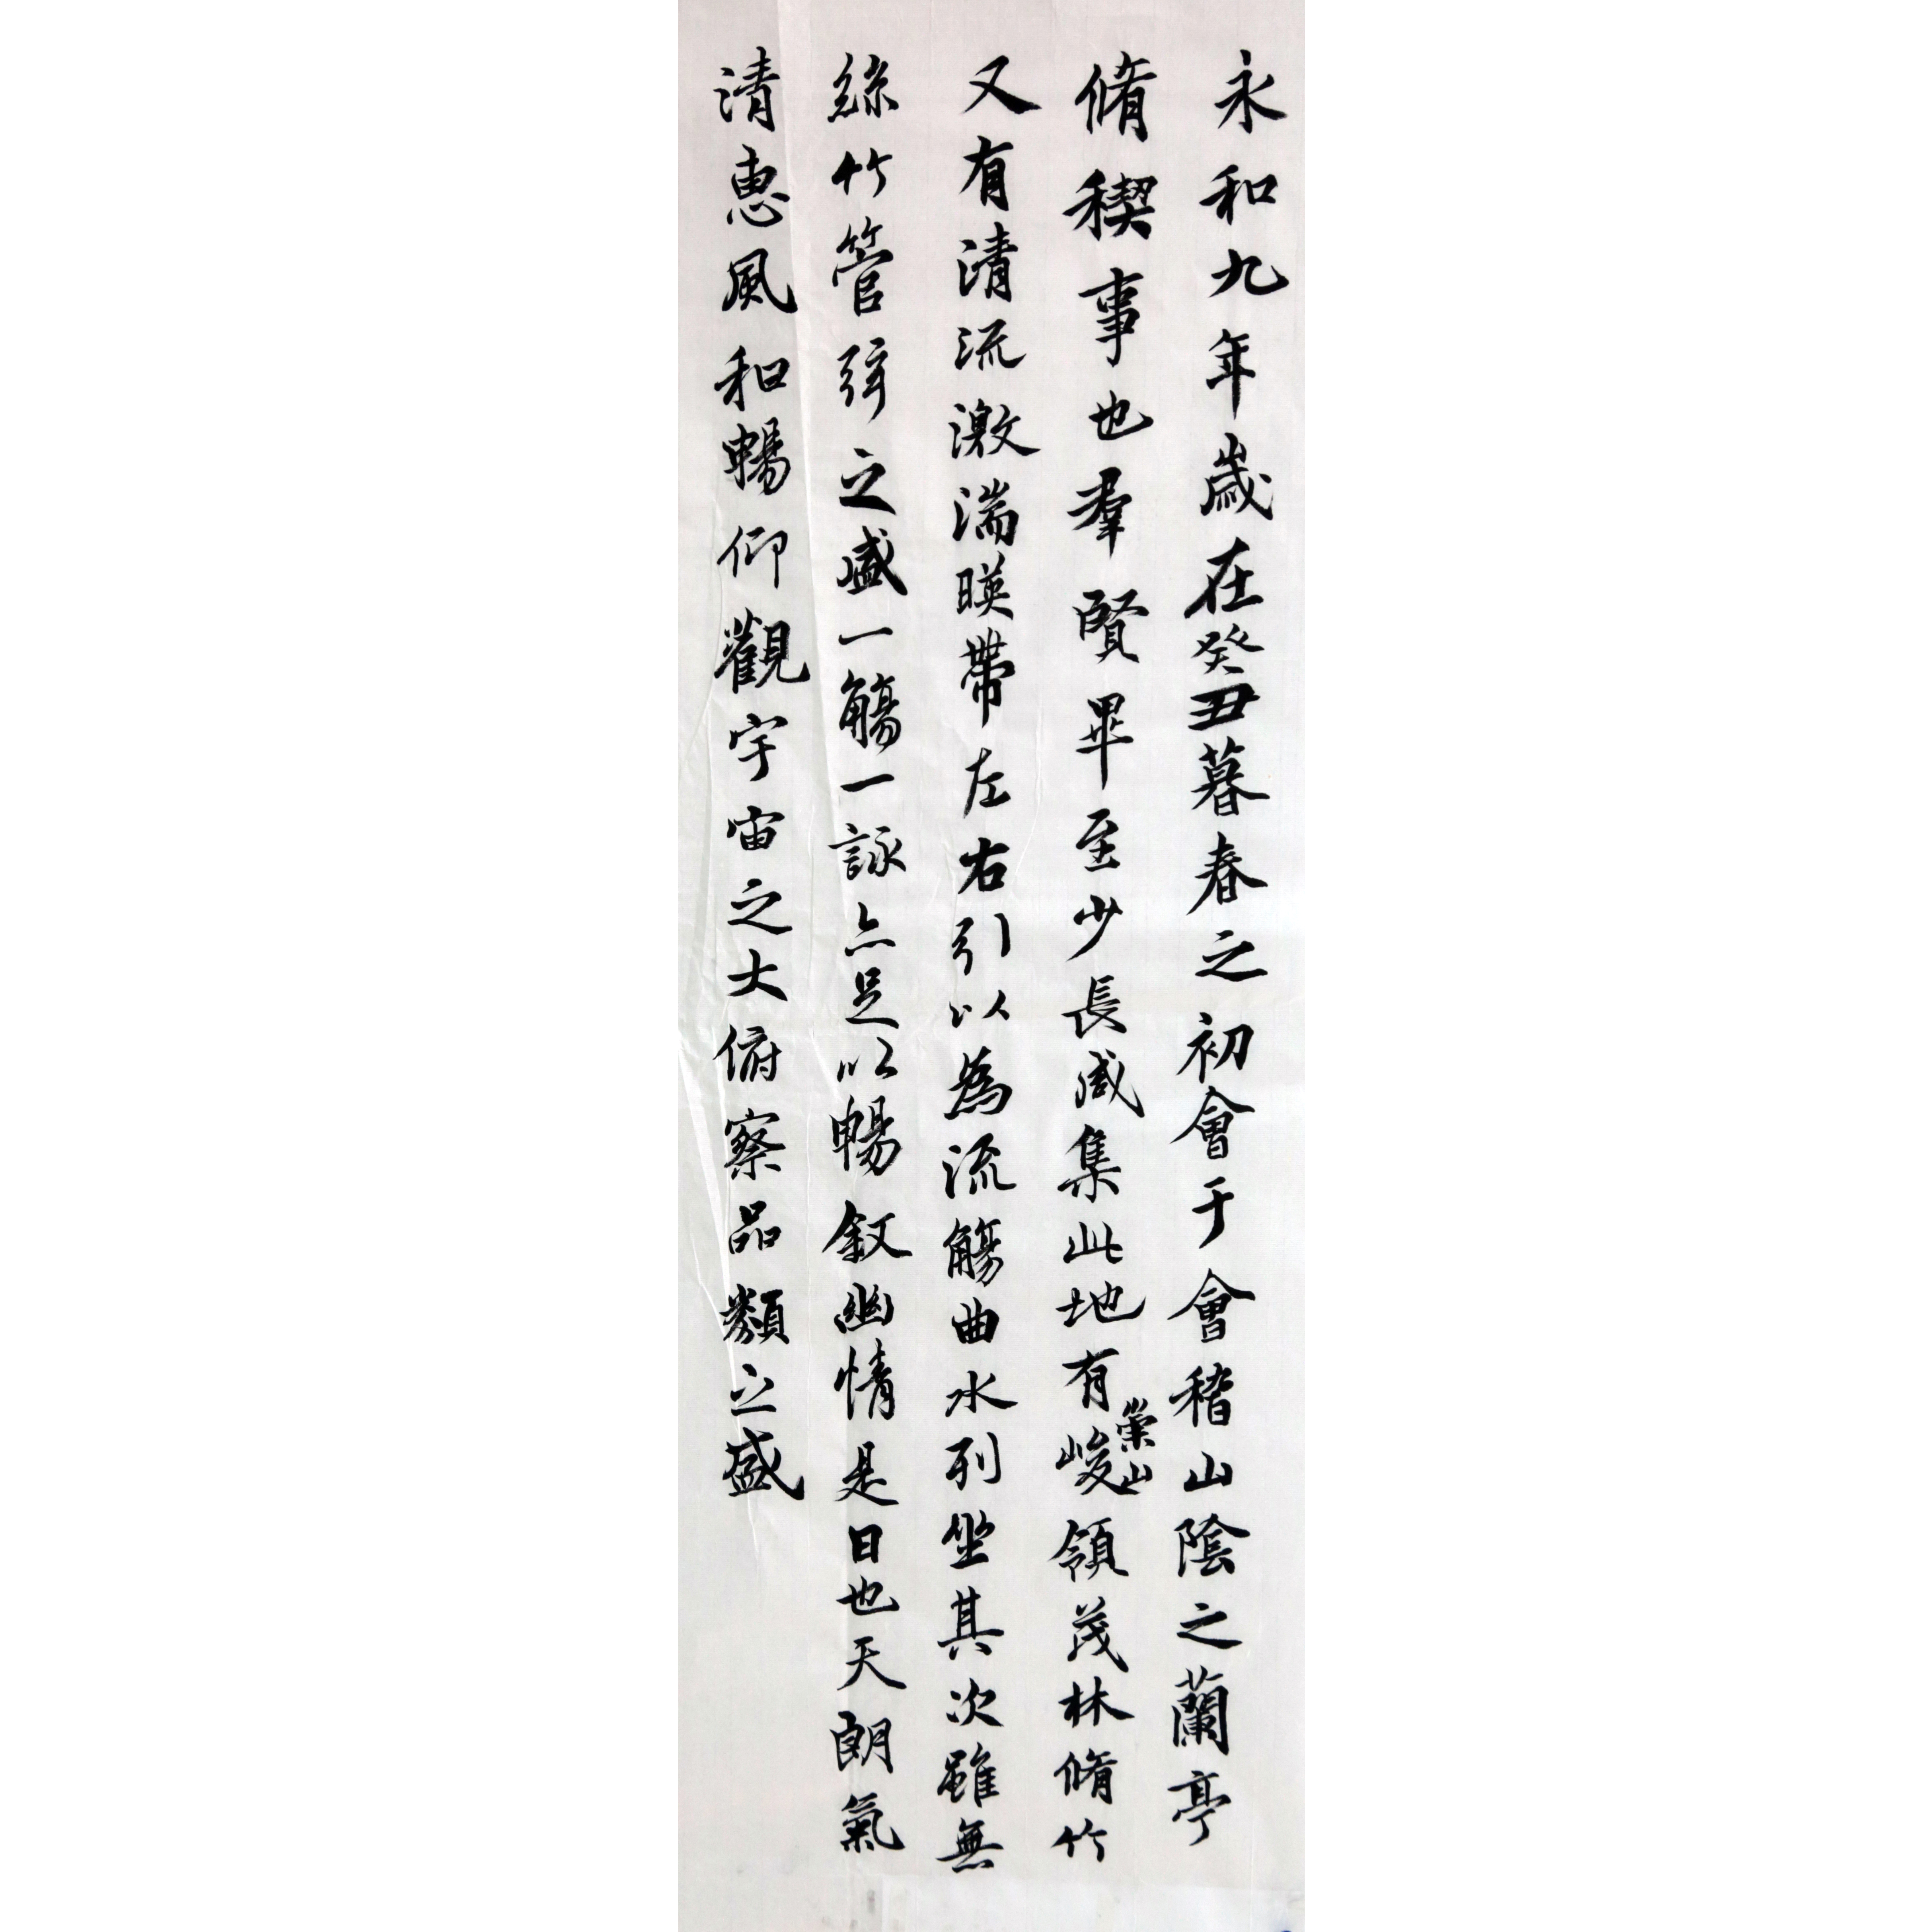 永和九年歲在癸丑暮春之初會于會稽山陰之蘭亭
脩稧事也羣賢畢至少長咸集此地有崇山峻領茂林脩竹
又有清流激湍暎帶左右引以為流觴曲水列坐其次雖無
絲竹管弦之盛一觴一詠亦足以暢敘幽情是日也天朗氣
清惠風和暢仰觀宇宙之大俯察品類之盛